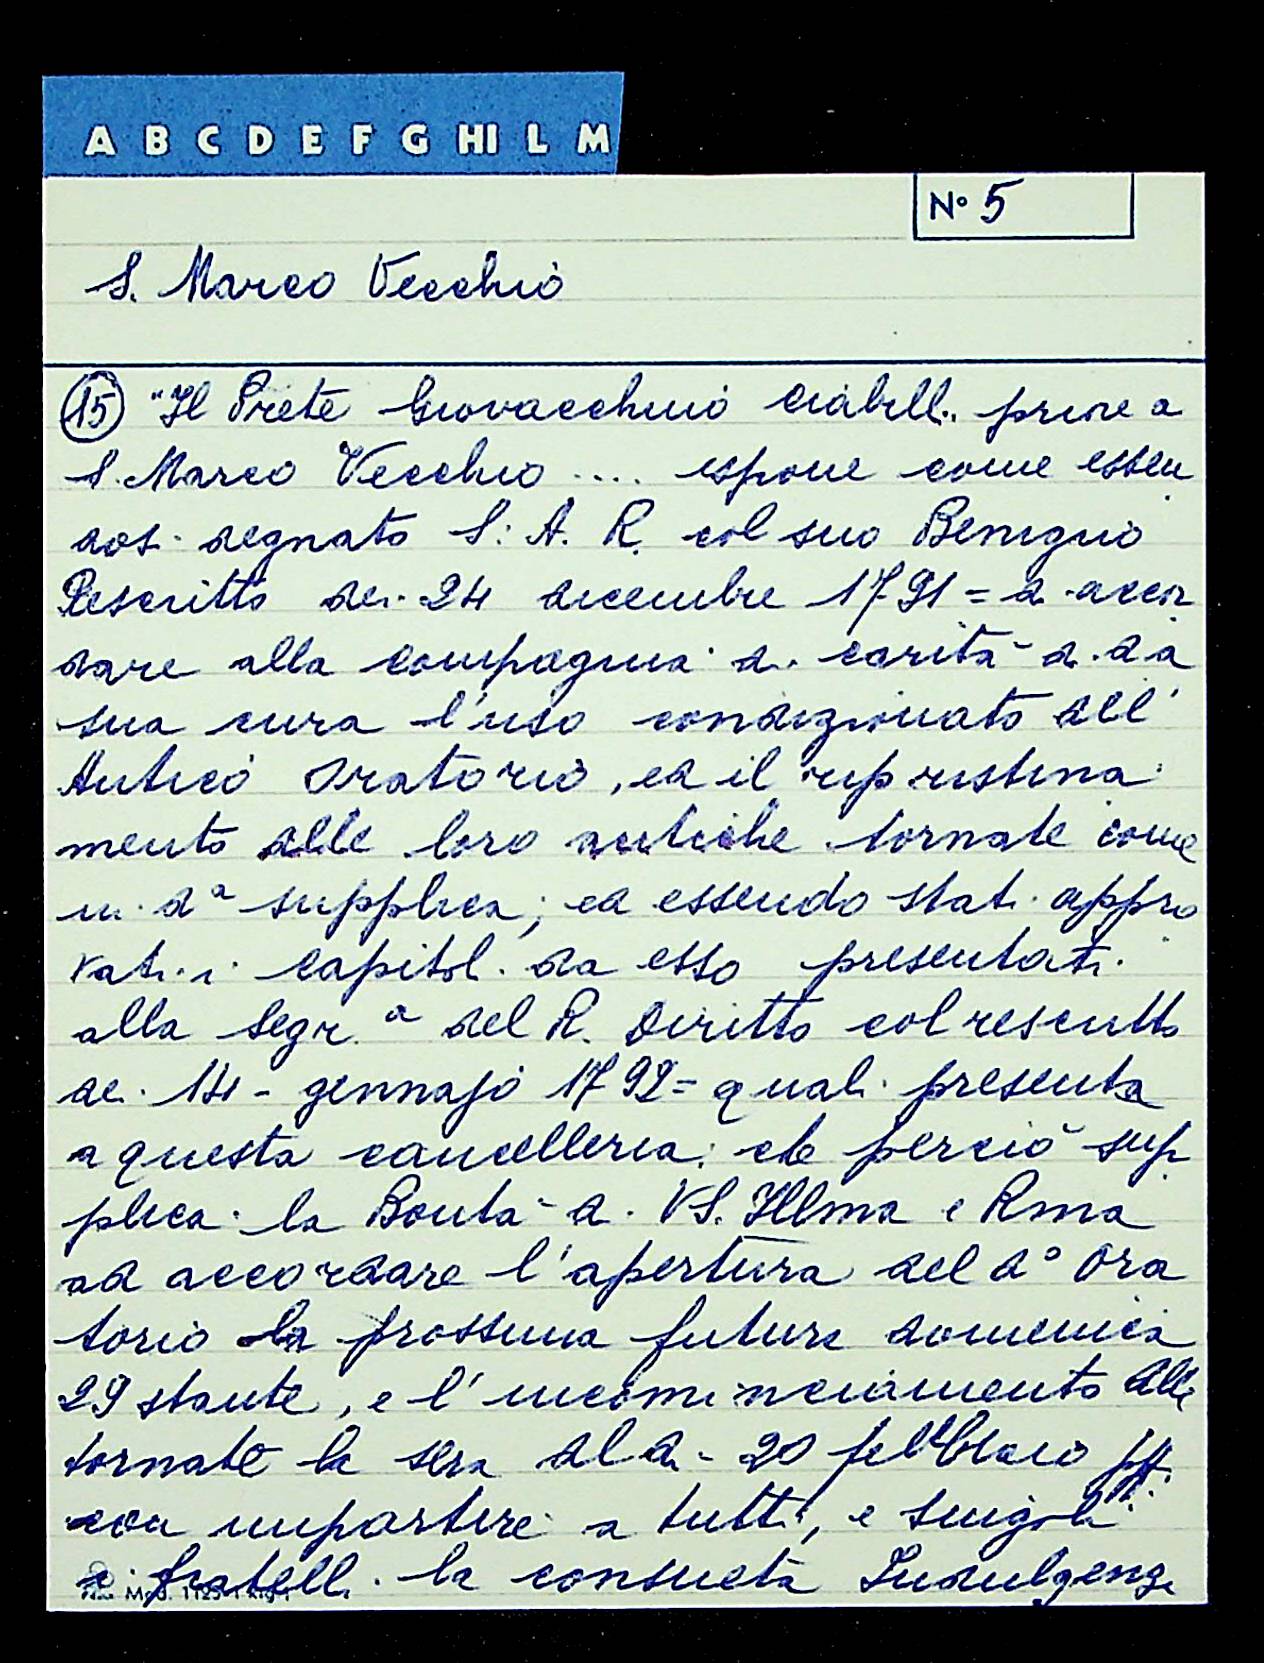 A B C D E F G HI L M
N° 5
S. Marco Vecchio
15 "Il Prete Giovacchino Ciabilli priore a
S. Marco Vecchio .... espone come essen
dosi degnato S: A. R. col suo Benigno
Rescritto dei 24 dicembre 1791 = di accor
dare alla compagnia di carità di da
sua cura l'uso condizionato dell'
Antico Oratorio, ed il ripristina
mento delle loro antiche tornate come
in da supplica; ed essendo stati appro
vati i capitoli da esso presentati
alla Segr.a del R. Diritto col rescritto
dei 14 - gennajo 1792 = quali presenta
a questa cancelleria: che perciò sup
plica la Bontà di VS. Illma e Rma
ad accordare l'apertura del do Ora
torio la prossima futura domenica
29 stante, e l'incominciamento delle
tornate la sera del dì - 20 febbraio
con impartire a tutti, e singoli
i fratelli la consueta Indulgenz